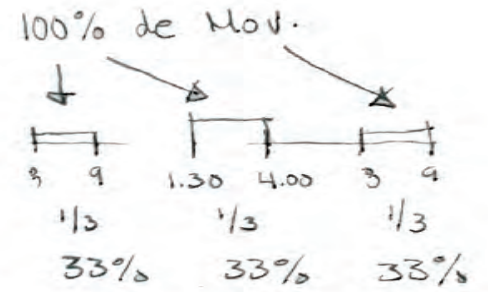 100% de Mov.
3 9 1.30 4.00 3 9
1/3 1/3 1/3
33% 33% 33%